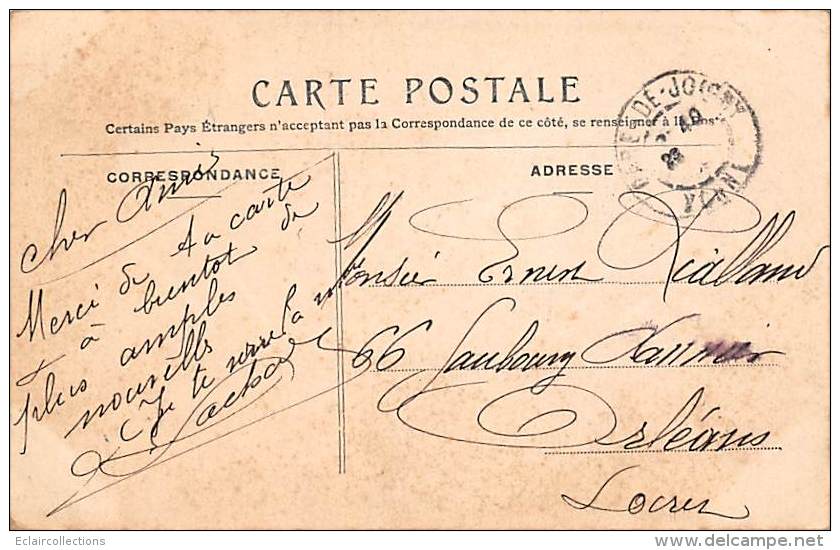 CARTE POSTALE
Certains Pays Étrangers n'acceptant pas la Correspondance de ce côté, se renseigner à la Poste
CORRESPONDANCE
ADRESSE
GARE-DE-JOIGNY
Cher Amis
Merci de ta carte
à bientot de
plus amples
nouvelles
Je te serre la main
Monsieur Ernest Riälland
66 Faubourg Bannier
Orléans
Loiret
Eclaircollections
www.delcampe.net